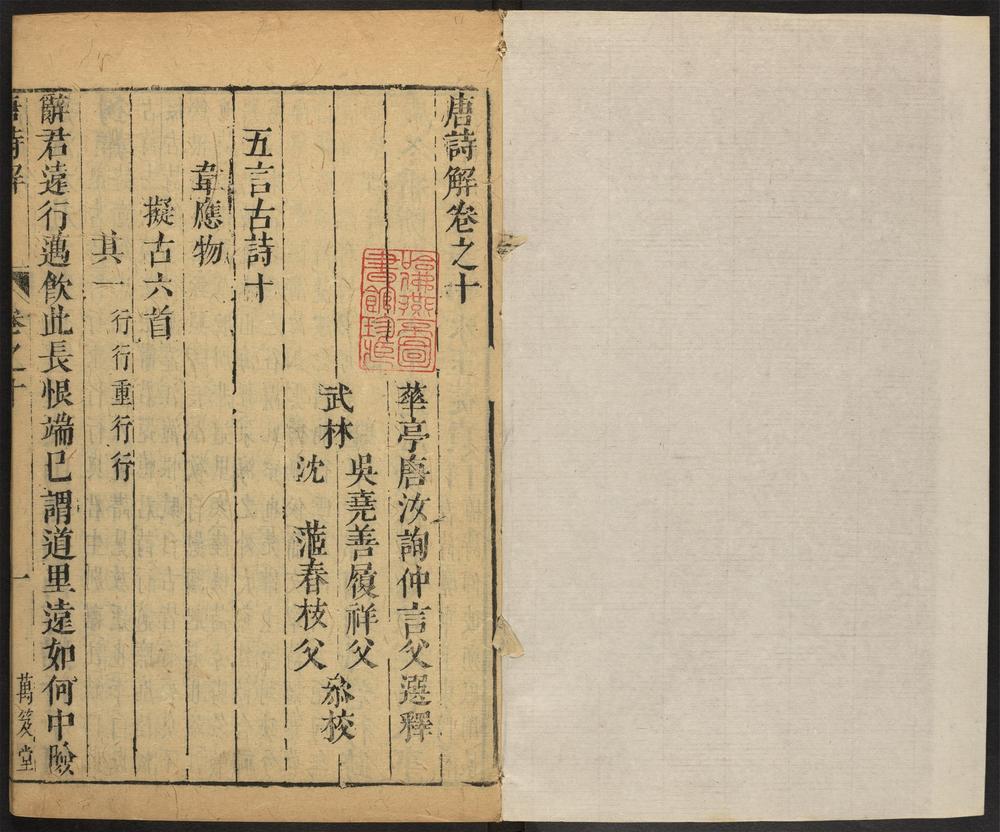 唐詩解卷之十
華亭唐汝詢仲言父選釋
吳堯善履祥父
武林
沈 蒞春枝父
叅校
五言古詩十
韋應物
擬古六首
其一 行行重行行
辭君遠行邁飲此長恨端已謂道里遠如何中險
唐詩解
卷之十
一
萬笈堂
哈佛燕京圖書館珍藏